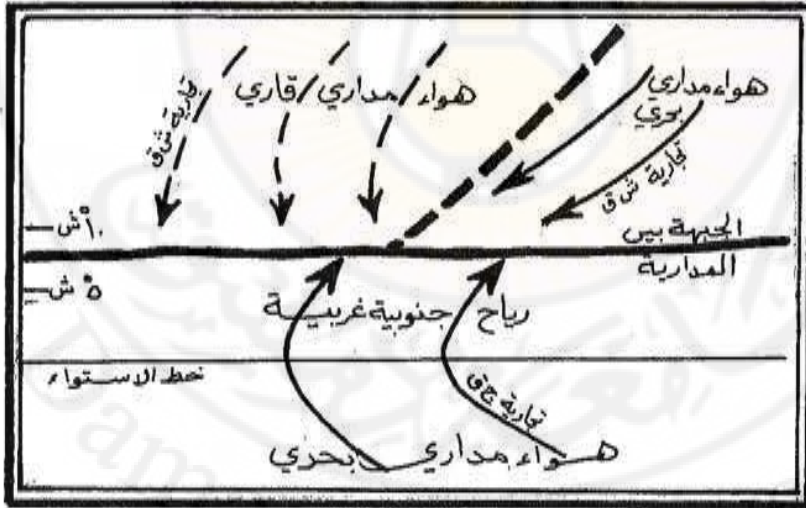 هواء مداري قاري
هواء مداري
بحري
تجارية ش ق
تجارية ش ق
°١٠ ش
الجبهة بين
المدارية
°٥ ش
رياح جنوبية غربية
خط الاستواء
تجارية ج ق
هواء مداري بحري